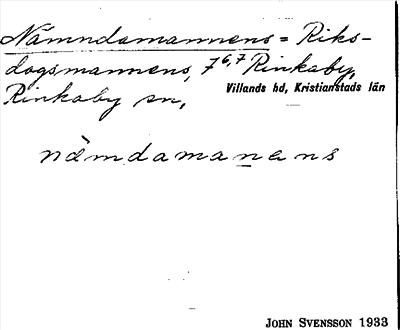 Nämndamannens = Riks-
dagsmannens, 7⁶,⁷ Rinkaby,
Rinkaby sn,
Villands hd, Kristianstads län
nämdamanens
JOHN SVENSSON 1933